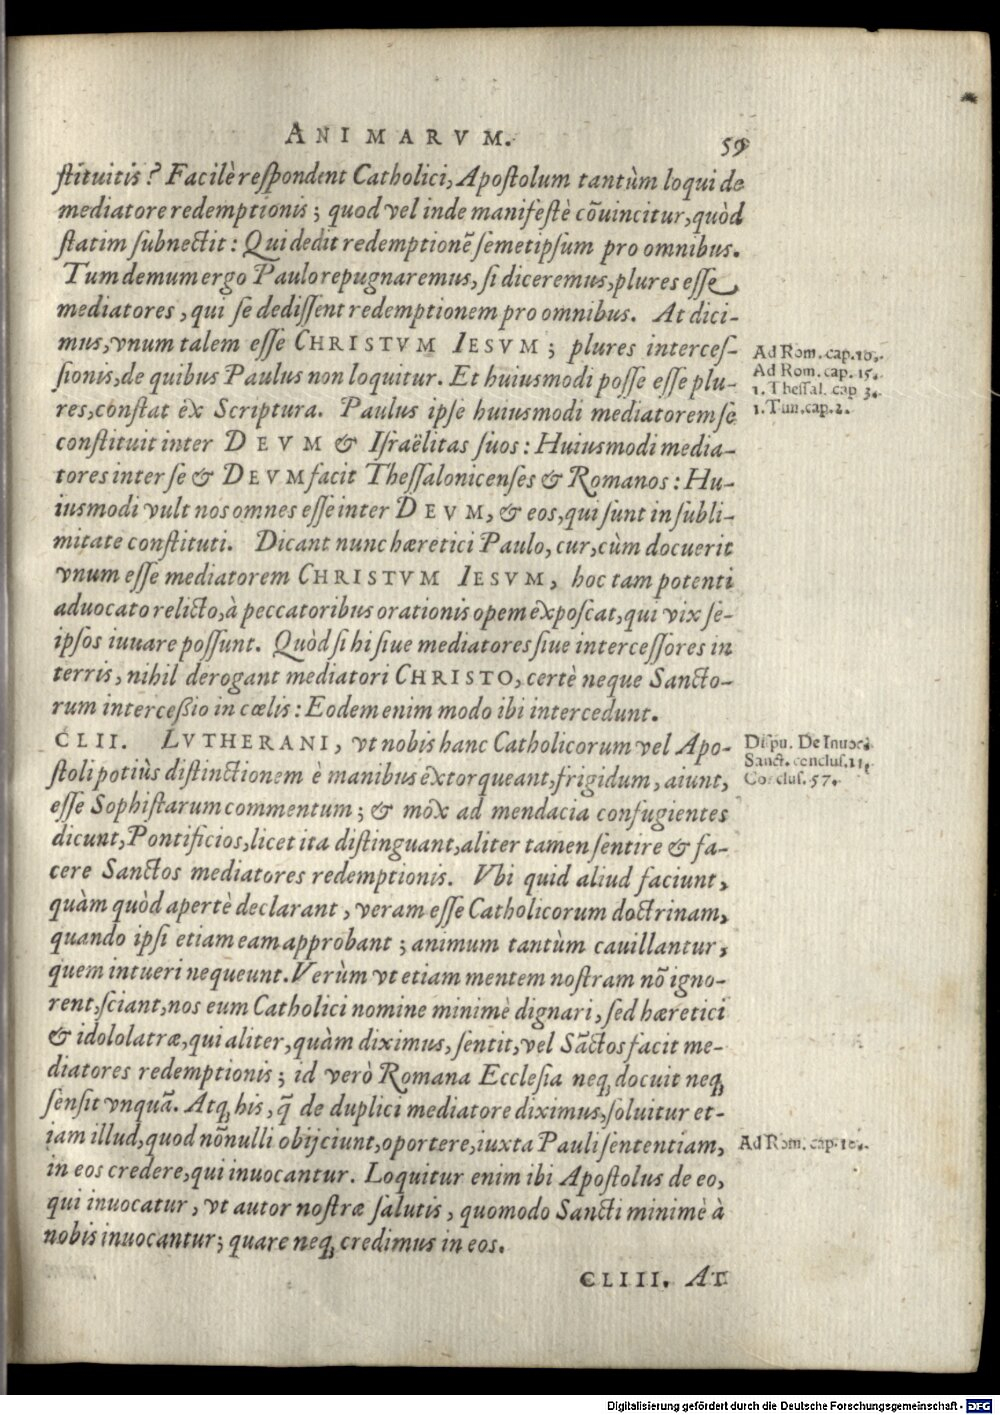 ANIMARVM. 59
ſtituitis? Facilè reſpondent Catholici, Apoſtolum tantùm loqui de
mediatore redemptionis; quod vel inde manifeſtè cõuincitur, quòd
ſtatim ſubnectit: Qui dedit redemptionẽ ſemetipſum pro omnibus.
Tum demum ergo Paulo repugnaremus, ſi diceremus, plures eſſe
mediatores, qui ſe dediſſent redemptionem pro omnibus. At dici-
mus, vnum talem eſſe CHRISTVM IESVM; plures interceſ-
ſionis, de quibus Paulus non loquitur. Et huiusmodi poſſe eſſe plu-
res, conſtat ex Scriptura. Paulus ipſe huiusmodi mediatorem ſe
conſtituit inter DEVM & Iſraëlitas ſuos: Huiusmodi media-
tores inter ſe & DEVM facit Theſſalonicenſes & Romanos: Hu-
iusmodi vult nos omnes eſſe inter DEVM, & eos, qui ſunt in ſubli-
mitate conſtituti. Dicant nunc hæretici Paulo, cur, cùm docuerit
vnum eſſe mediatorem CHRISTVM IESVM, hoc tam potenti
aduocato relicto, à peccatoribus orationis opem expoſcat, qui vix ſe-
ipſos iuuare poſſunt. Quòd ſi hi ſiue mediatores ſiue interceſſores in
terris, nihil derogant mediatori CHRISTO, certè neque Sancto-
rum interceßio in cœlis: Eodem enim modo ibi intercedunt.
Ad Rom. cap. 10.
Ad Rom. cap. 15.
1. Theſſal. cap 3.
1. Tim. cap. 2.
CLII. LVTHERANI, vt nobis hanc Catholicorum vel Apo-
ſtoli potiùs diſtinctionem è manibus extorqueant, frigidum, aiunt,
eſſe Sophiſtarum commentum; & mox ad mendacia confugientes
dicunt, Pontificios, licet ita diſtinguant, aliter tamen ſentire & fa-
cere Sanctos mediatores redemptionis. Vbi quid aliud faciunt,
quàm quòd apertè declarant, veram eſſe Catholicorum doctrinam,
quando ipſi etiam eam approbant; animum tantùm cauillantur,
quem intueri nequeunt. Verùm vt etiam mentem noſtram nõ igno-
rent, ſciant, nos eum Catholici nomine minimè dignari, ſed hæretici
& idololatræ, qui aliter, quàm diximus, ſentit, vel Sãctos facit me-
diatores redemptionis; id verò Romana Eccleſia neq; docuit neq;
ſenſit vnquã. Atq; his, q̃ de duplici mediatore diximus, ſoluitur et-
iam illud, quod nõnulli obijciunt, oportere, iuxta Pauli ſententiam,
in eos credere, qui inuocantur. Loquitur enim ibi Apoſtolus de eo,
qui inuocatur, vt autor noſtræ ſalutis, quomodo Sancti minimè à
nobis inuocantur; quare neq; credimus in eos.
Diſpu. De Inuoca.
Sanct. concluſ. 11.
Concluſ. 57.
Ad Rom. cap. 10.
CLIII. At
Digitalisierung gefördert durch die Deutsche Forschungsgemeinschaft - DFG